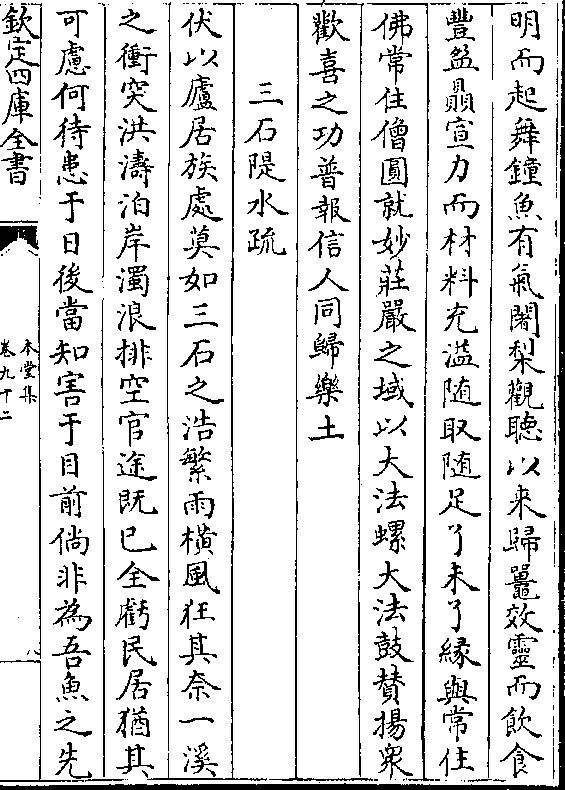 明而起舞鐘魚有氣闍梨觀聽以来歸鼉效靈而飲食
豐盈贔宣力而材料充溢随取随足了未了緣與常住
佛常住僧圓就妙莊嚴之域以大法螺大法鼓賛揚衆
歡喜之功普報信人同歸樂土
三石隄水疏
伏以廬居族處莫如三石之浩繁雨横風狂其奈一溪
之衝突洪濤泊岸濁浪排空官途既已全虧民居猶其
可慮何待患于日後當知害于目前倘非為吾魚之先
欽定四庫全書
本堂集
卷九十二
八